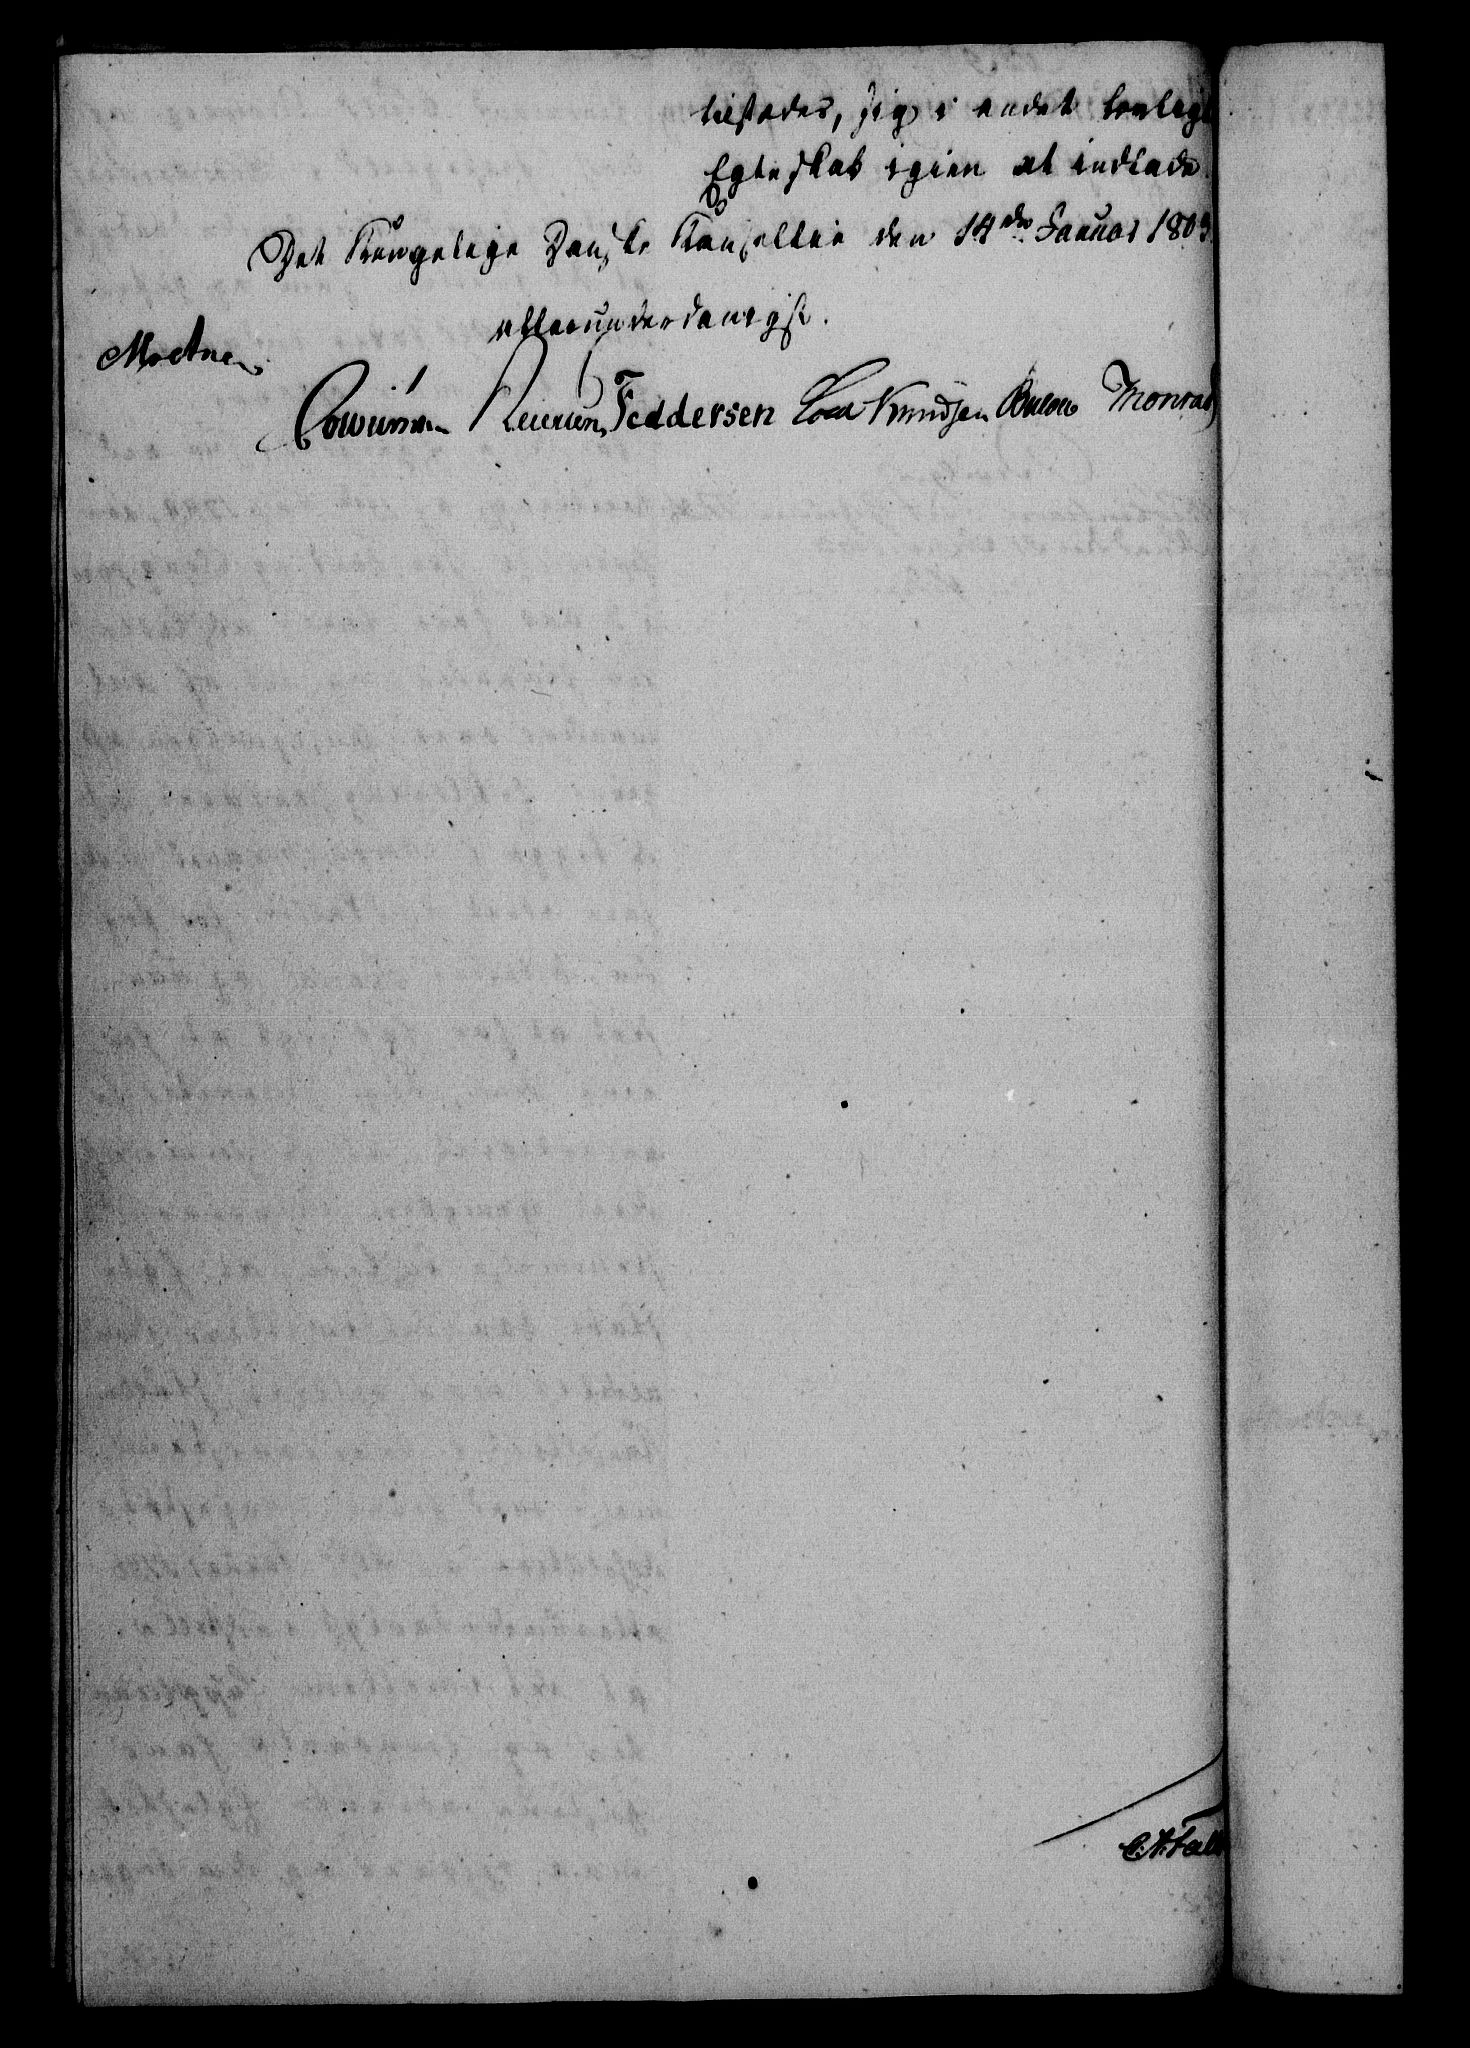 tilstædes, sig i andet lovligt
Egteskab igien at indlade.
Det Kongelige Danske Kancellie den 14de Januar 1803
allerunderdanigst.
Moltke
Cold Knudsen Bülow Monrad
Feddersen
C. N. Fall